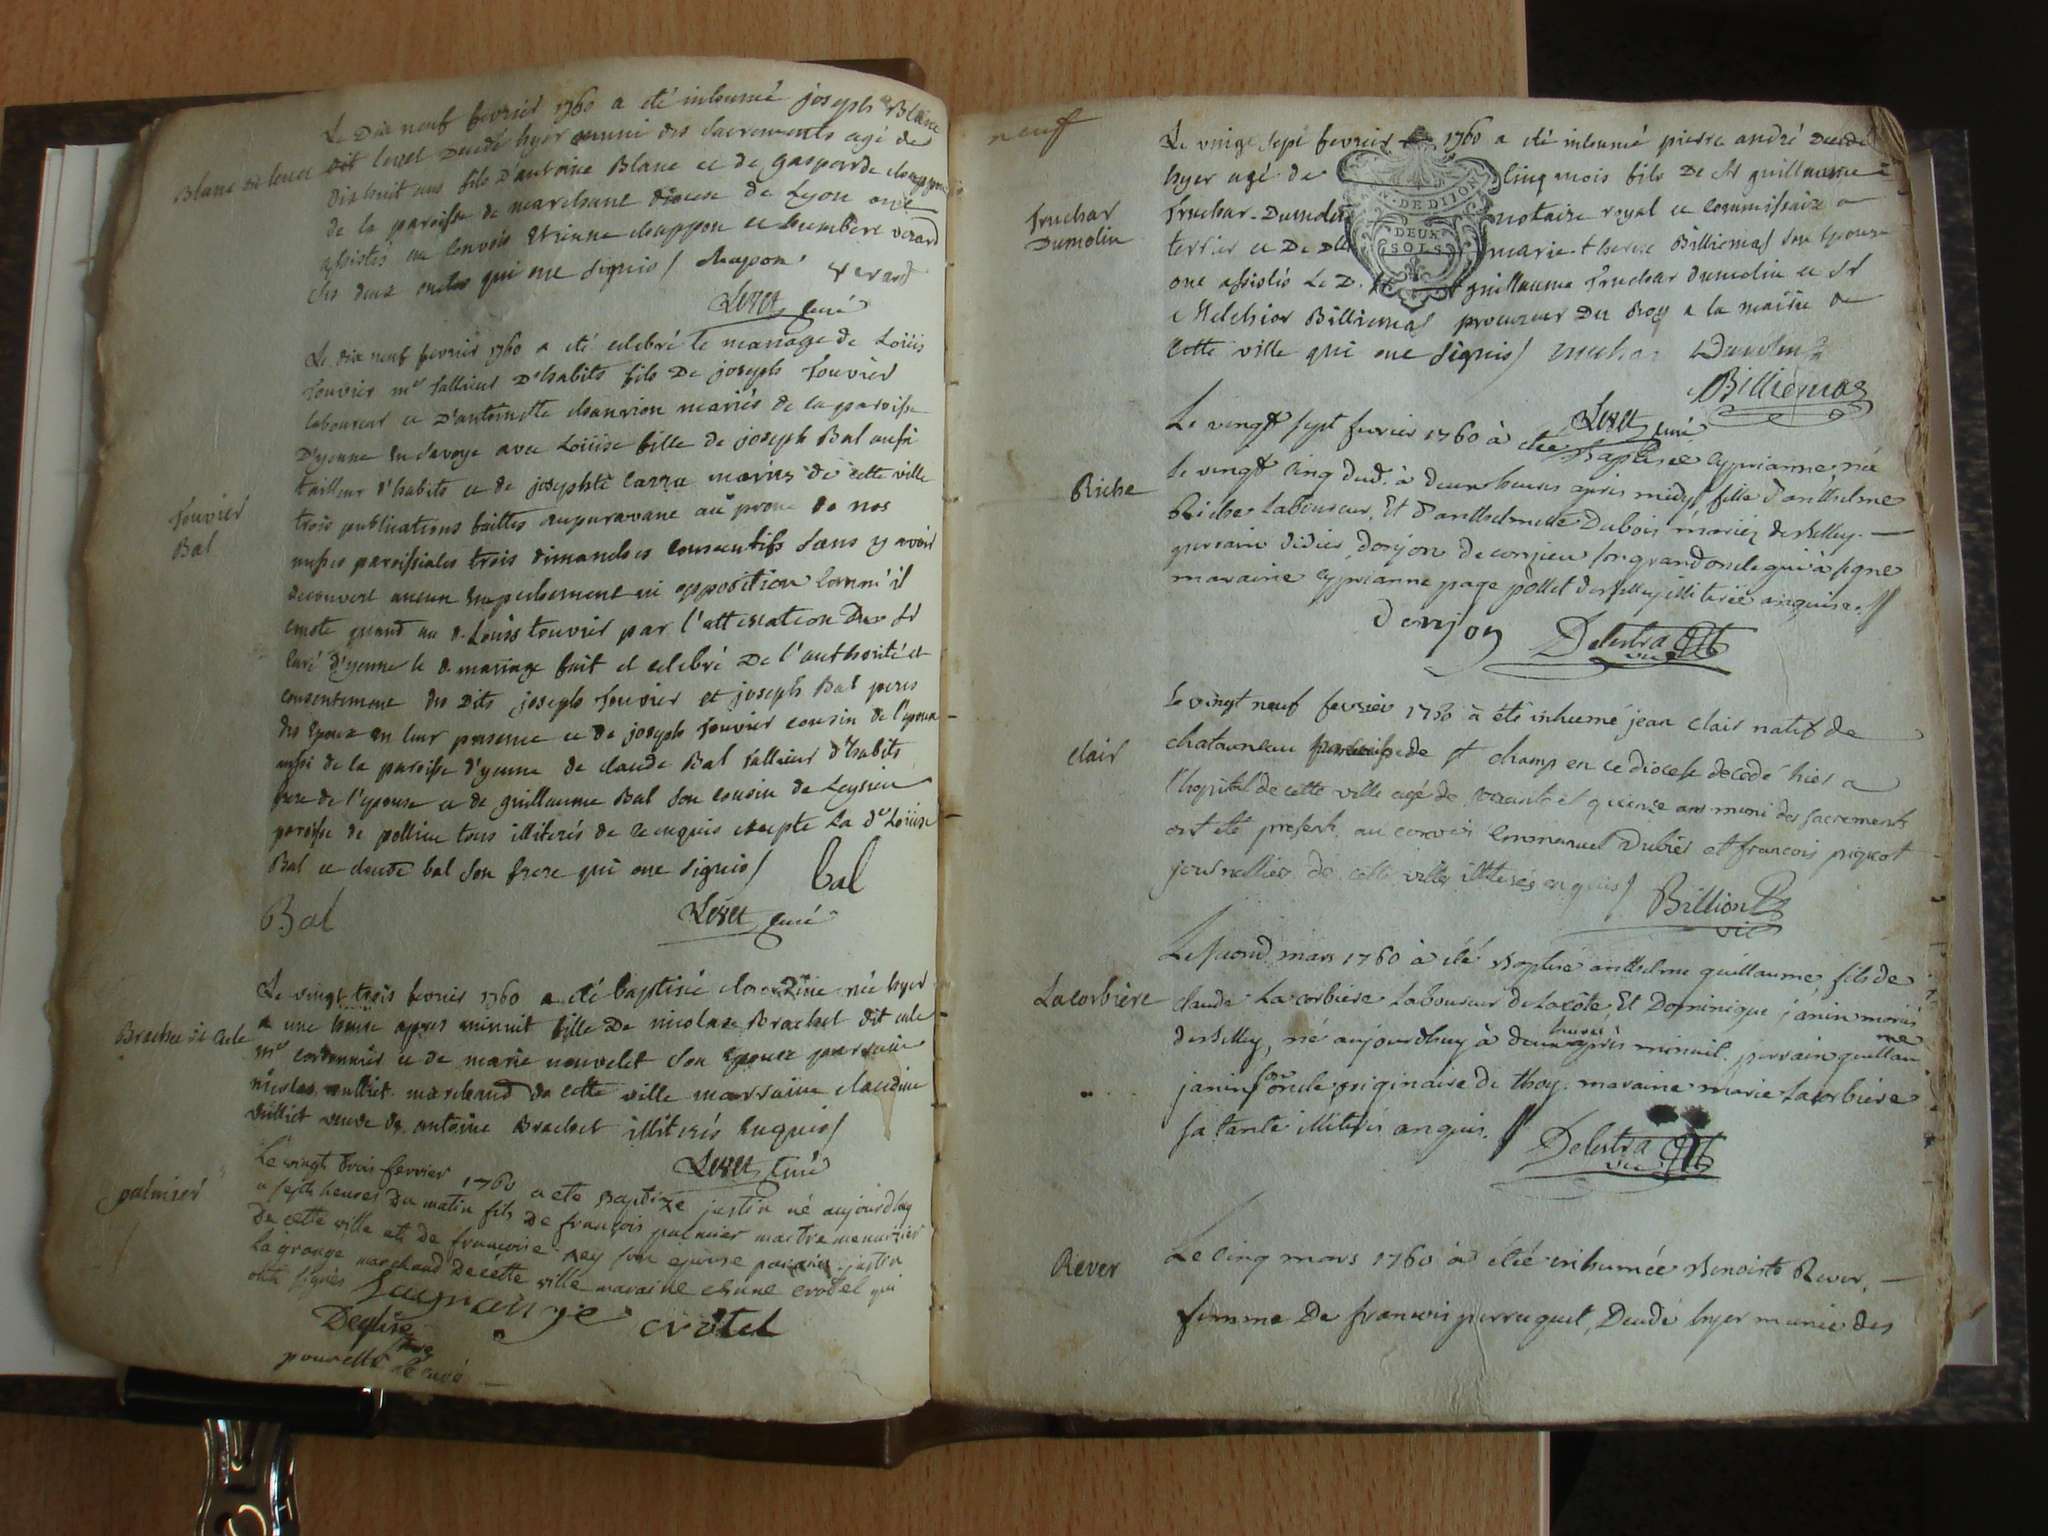 Le Dix neuf fevrier 1760 a eté inhumé joseph Blanc
Blanc dit louet
dit louet Decedé hyer muni des sacrements agé de
dishuit ans fils D'antoine Blanc et de gasparde
de la paroisse de marchant diocese de Lyon ont
assistés au convois Etienne chappon et humbert verard
ses deux oncles qui ont signés / chapon. verard
curé
Le dix neuf fevrier 1760 a eté celebré le mariage de Loüis
Touvier me tallieur D'habits fils De joseph Touvier
laboureur et D'antoinette chanvion mariés de la paroisse
D'yenne en savoye avec Loüise fille de joseph Bal aussi
tailleur d'habits et de josephte Carra mariés de cette ville
Touvier
Bal
trois publications faittes auparavant au prone de nos
messes paroissiales trois dimanches consecutifs sans y avoir
decouvert aucun empechement ni opposition comm'il
conste quand au d. Loüis touvier par l'attestation Du Sr
curé D'yenne le d. mariage fait et celebré De l'authorité et
consentement des Dits joseph Touvier et joseph Bal peres
des Epoux en leur presence et de joseph Touvier cousin de l'epoux
aussi de la paroisse d'yenne de claude Bal tallieur d'habits
frere de l'epouse et de guillaume Bal son cousin de Leysieu
paroisse de pollieu tous illiterés de ce enquis excepté La de Loüise
Bal et claude bal son frere qui ont signés / bal
Bal
curé
Le vingt trois fevrier 1760 a eté baptisée claudine née hyer
a une heure apres minuit fille De nicolas Brachet dit
me cordonnier et de marie nouvelet son Epouse parrain
nicolas vulliet marchand de cette ville marraine claudine
vulliet veuve de antoine Brachet illiterés Enquis /
curé
palmier
Le vingt trois fevrier 1760 a eté Baptizé justin né aujourdhuy
a sept heures Du matin fils De françois palmier maitre menuizier
De cette ville et de francoise Rey son epouse parain justin
la grange marchand De cette ville maraine crotel qui
ont signés
crotel
pour le curé
neuf
Le vingt sept fevrier 1760 a eté inhumé pierre andré Decedé
hyer agé de cinq mois fils De Sr guillaume
Truchar
Dumolin
Truchar Dumolin notaire royal et commissaire a
terrier et De Dlle marie therese Billiemas son Epouse
DE DIJON
DEUX
SOLS
ont assistés Le D. Sr guillaume Truchar dumolin et Sr
Melchior Billiemas procureur Du Roy a la mairie De
cette ville qui ont signés / truchar Dumolin
Billiemaz
curé
Le vingt sept fevrier 1760 à etée Baptisée Cyprianne née
Riche
le vingt cinq dud. à deux heures apres midy fille d'anthelme
Riche Laboureur, Et d'anthelmette Dubois mariez de Belley.
parrain didier donjon de conzieu son grand oncle qui à signé
maraine cyprianne page pollet de Belley illiterée enquise. //
donjon Delestra vic
Le vingt neuf fevrier 1760 à été inhumé jean clair natif de
clair
paroisse de St champ en ce diocese decedé hier a
l'hopital de cette ville agé de soixante et quinze ans muni des sacrements
ont été presents au convoi Emmanuel Dubier et francois
journallier de cette ville illiterés enquis / Billion
vic
Le second mars 1760 à eté Baptisé anthelme guillaume fils de
Lacorbiere
claude Lacorbiere Laboureur de Lacôte, Et Dominique janin mariés
de Belley, né aujourdhuy à deux heures après minuit. parrain guillaume
janin son oncle originaire de thoy. maraine marie Lacorbiere
sa tante illiterés enquis. // Delestra
vic
Rever
Le cinq mars 1760 à étée inhumée Benoiste Rever,
femme De francois perruquet, Decedé hyer munie des